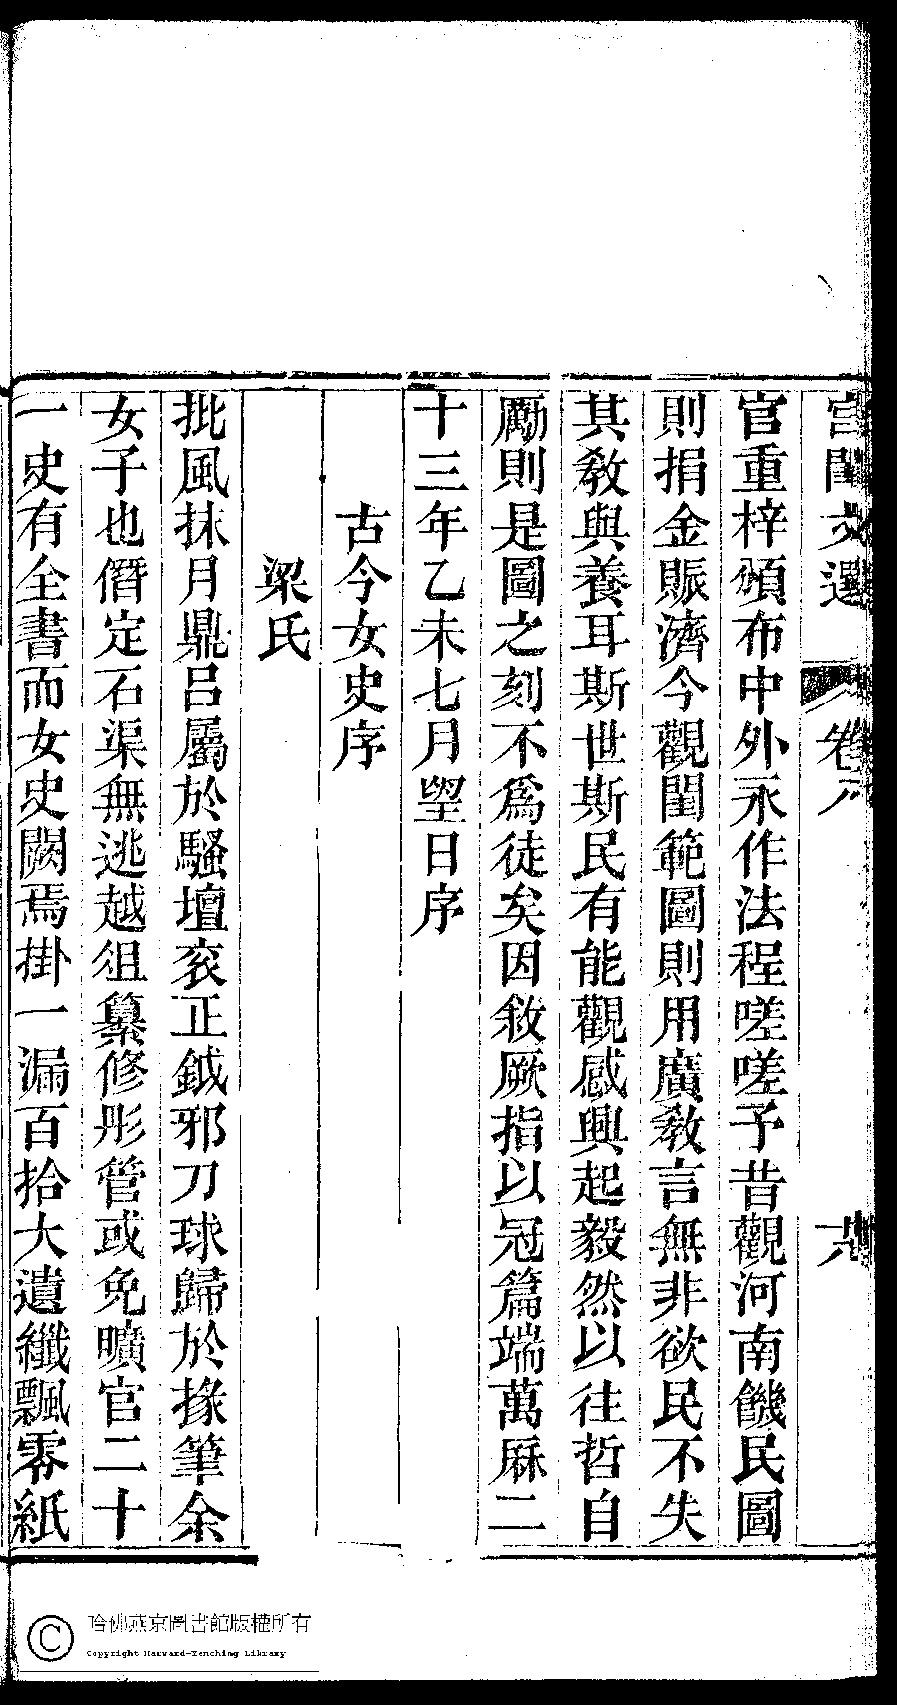 宫閨文選 卷六 十八
官重梓頒布中外永作法程嗟嗟予昔觀河南饑民圖
則捐金賑濟今觀閨範圖則用廣敎言無非欲民不失
其敎與養耳斯世斯民有能觀感興起毅然以往哲自
勵則是圖之刻不爲徒矣因敘厥指以冠篇端萬厤二
十三年乙未七月朢日序
古今女史序
梁氏
批風抹月鼎呂屬於騷壇衮正鉞邪刀球歸於掾筆余
女子也僭定石渠無逃越俎纂修彤管或免曠官二十
一史有全書而女史闕焉掛一漏百拾大遺纖飄零紙
哈佛燕京圖書館版權所有
Copyright Harvard-Yenching Library